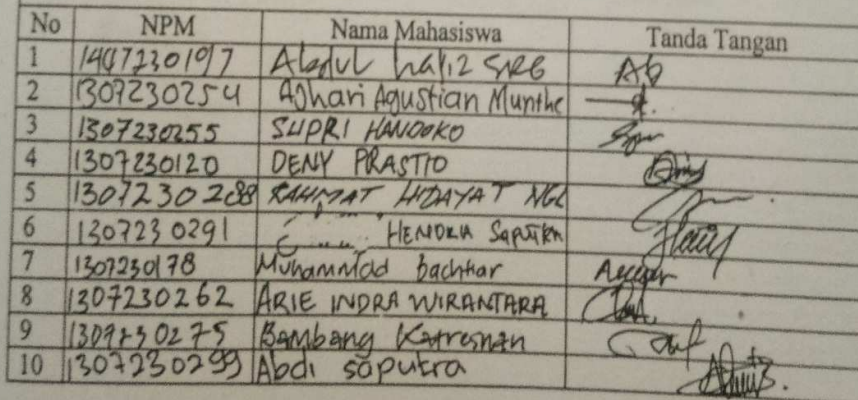 No NPM Nama Mahasiswa Tanda Tangan
1 1407230197 Abdul hafiz SRG Ab
2 1307230254 Aghari Agustian Munthe
3 1307230255 SUPRI HANDOKO
4 1307230120 DENY PRASTIO
5 1307230288 RAHMAT HIDAYAT NGL
6 1307230291 HENDRA SAPUTRA
7 1307230178 Muhammad bachtiar
8 1307230262 ARIE INDRA WIRANTARA
9 1307230275 Bambang Katresnan
10 1307230299 Abdi saputra